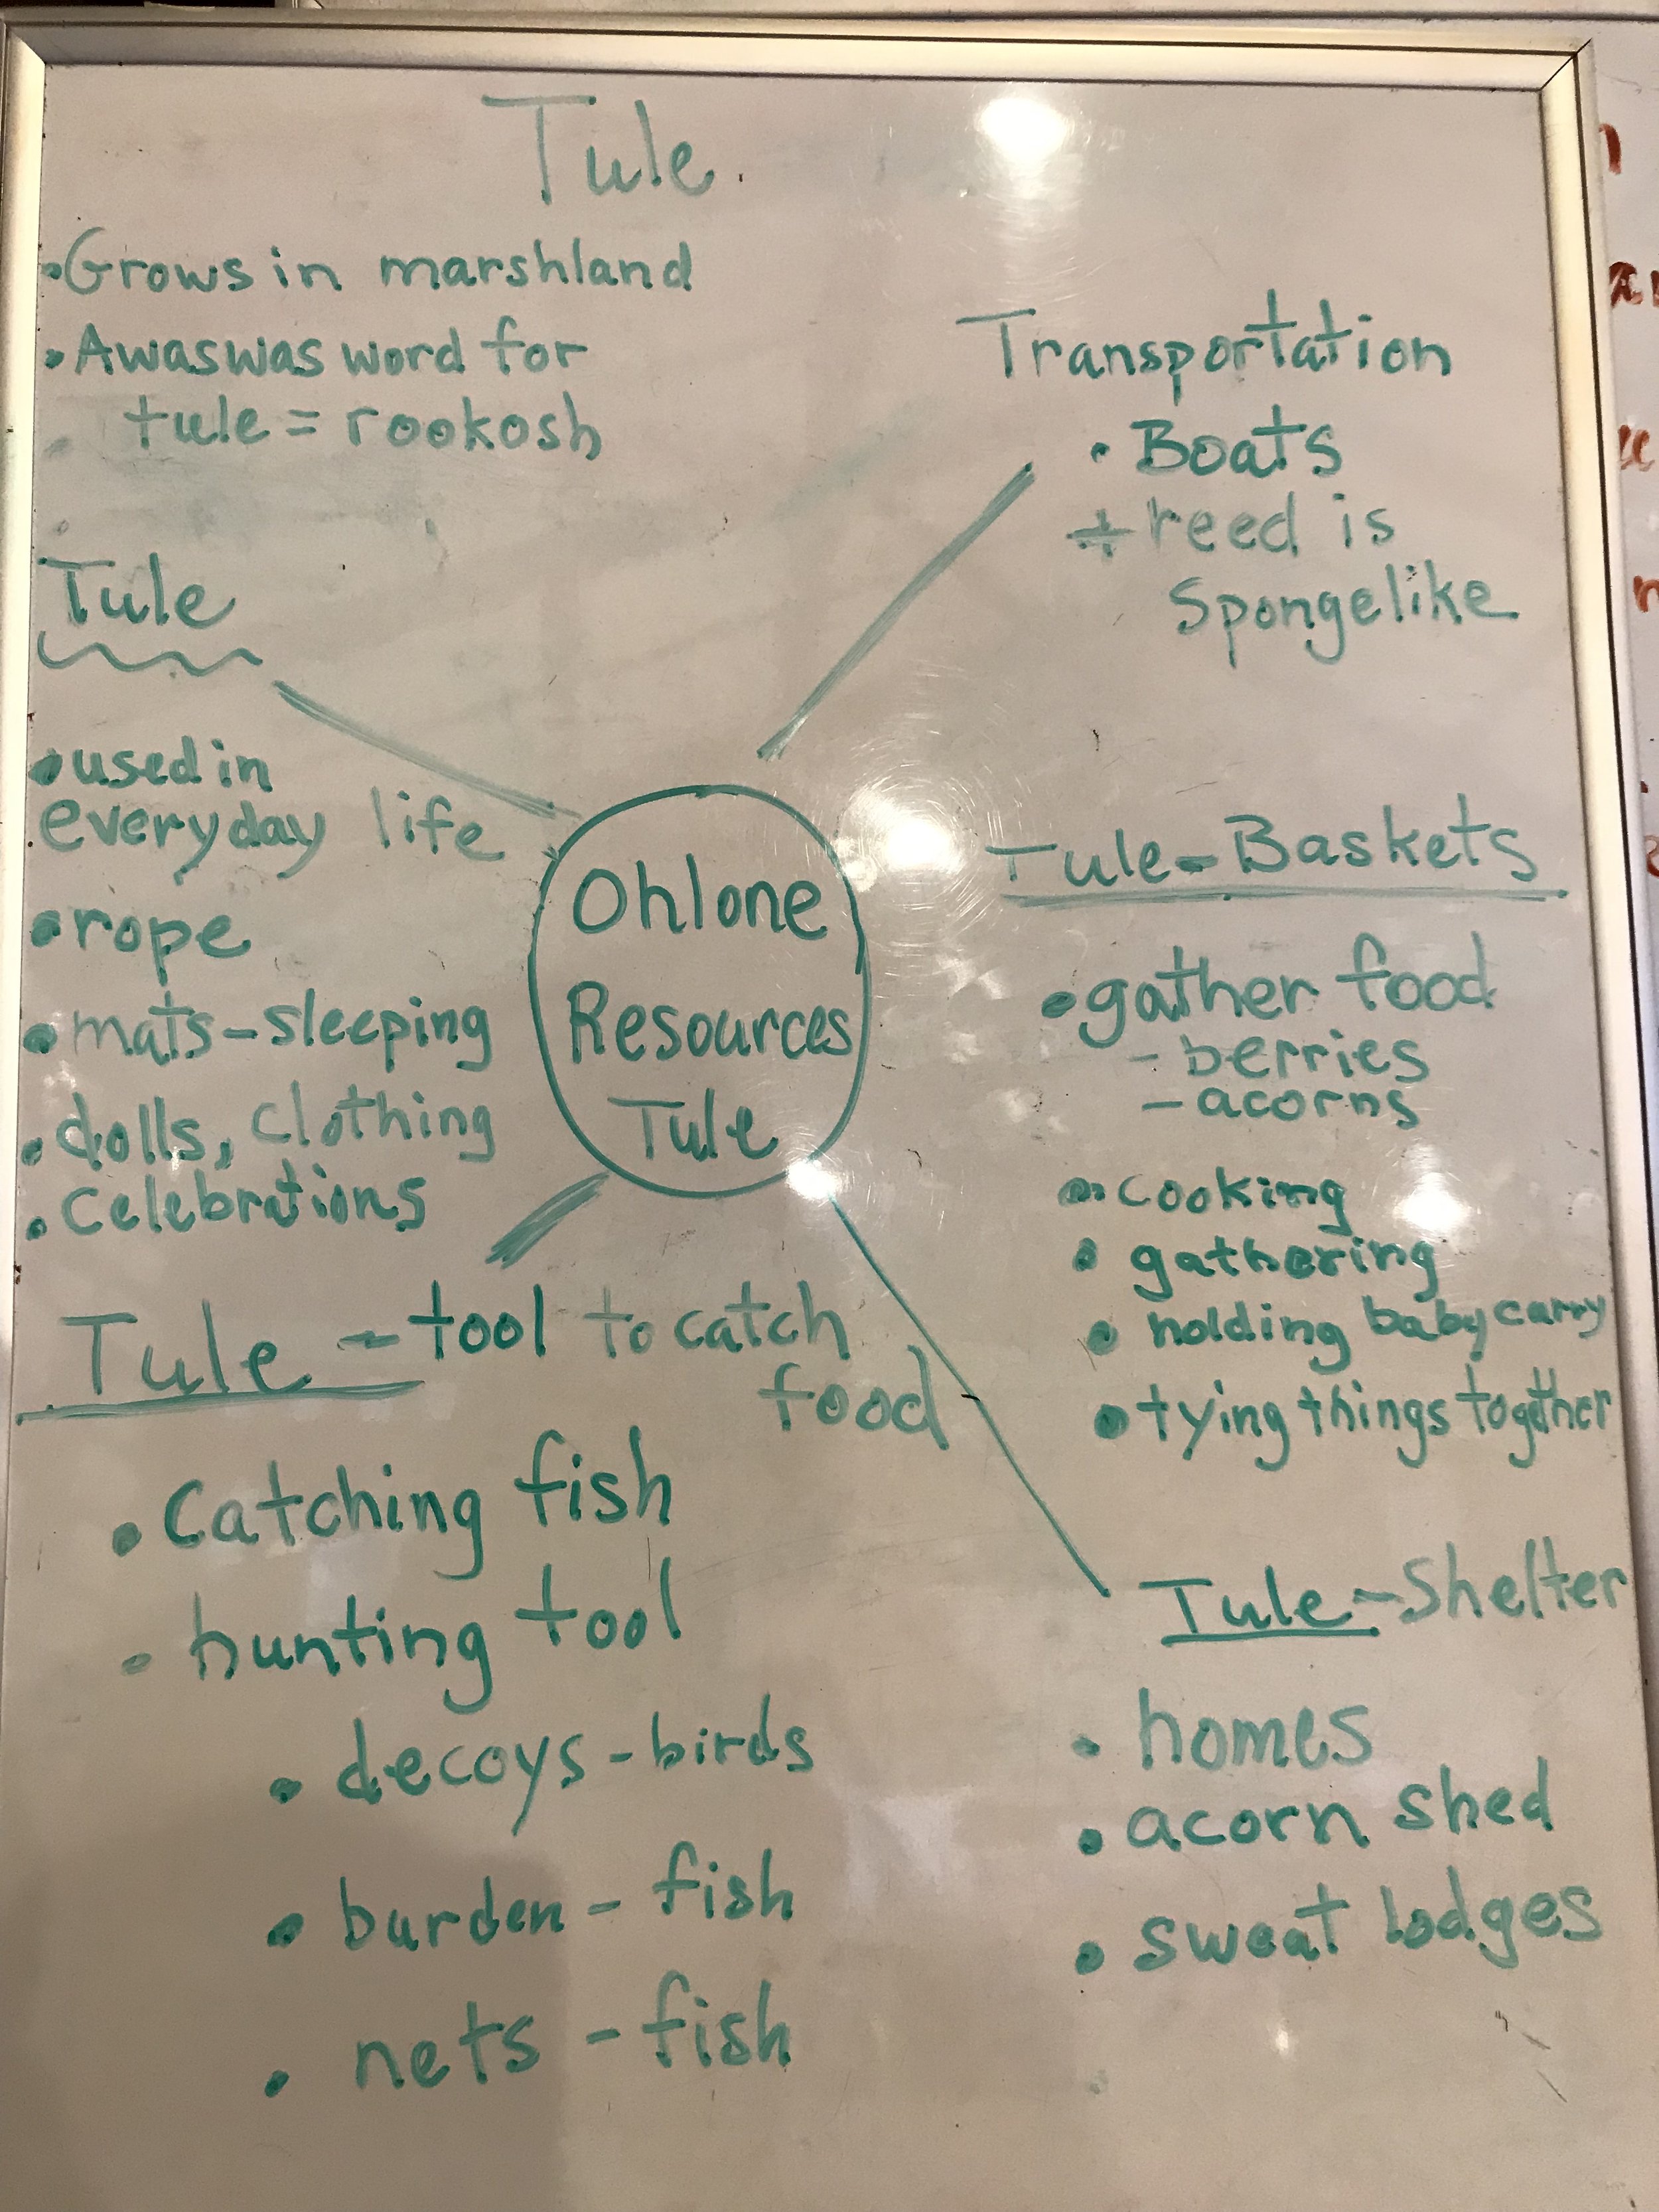 Tule
• Grows in marshland
• Awaswas word for
tule = rookosh
Tule
• used in
everyday life
• rope
• mats - sleeping
• dolls, clothing
• celebrations
Ohlone
Resources
Tule
Transportation
• Boats
+ reed is
spongelike
Tule - Baskets
• gather food
- berries
- acorns
• cooking
• gathering
• holding baby carry
• tying things together
Tule - tool to catch
food
• Catching fish
• hunting tool
• decoys - birds
• burden - fish
• nets - fish
Tule - Shelter
• homes
• acorn shed
• sweat lodges